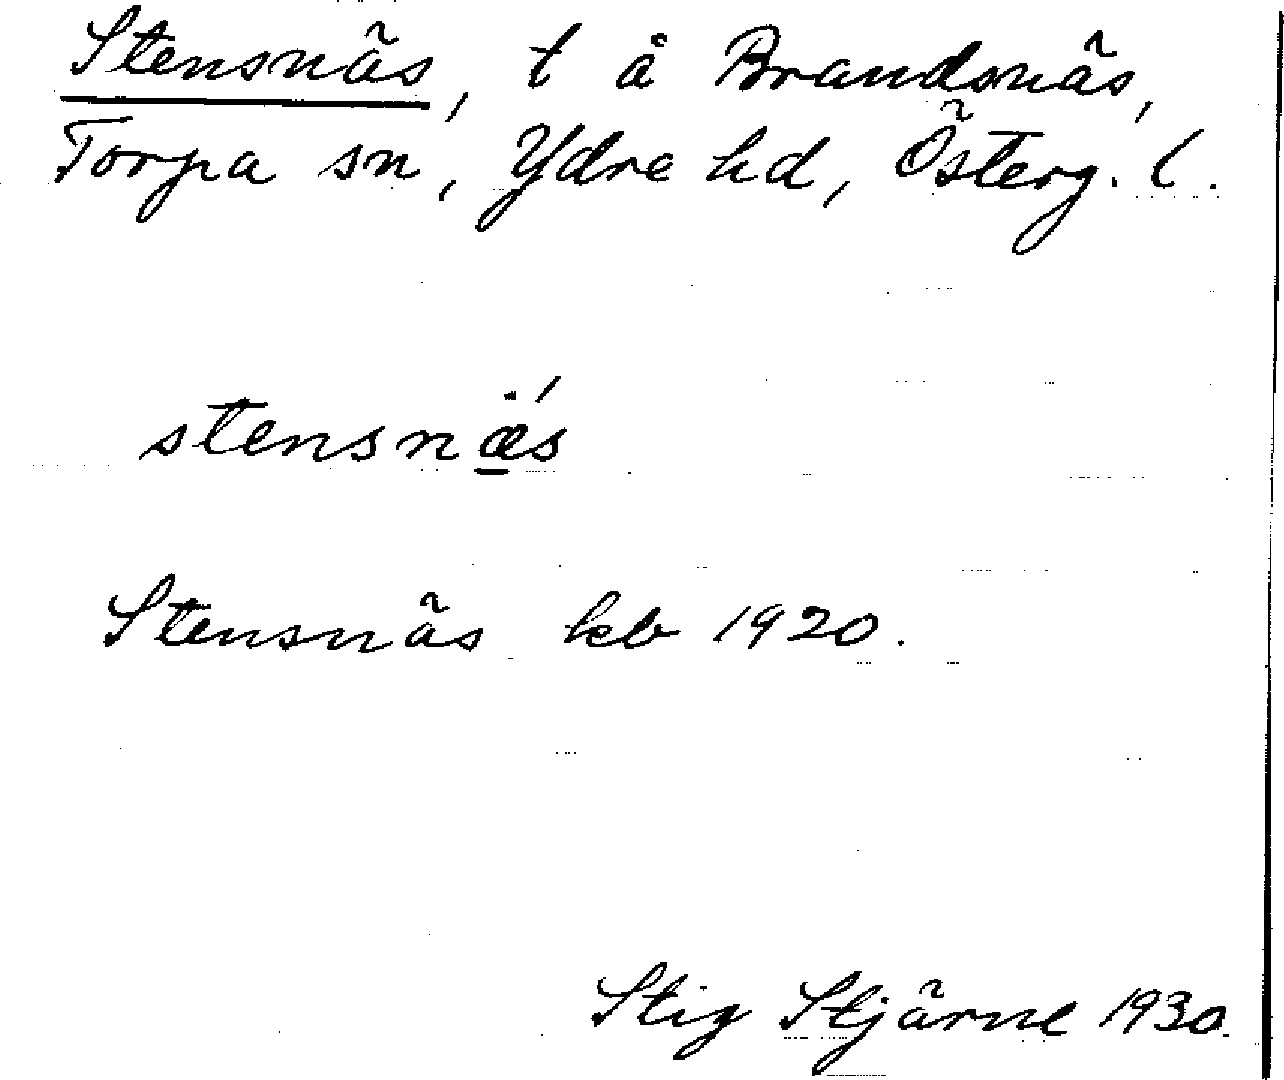 Stensnäs, t å Brandsnäs,
Torpa sn, Ydre hd, Österg. l.
stensnæ̱̈́s
Stensnäs kb 1920.
Stig Stjärne 1930.